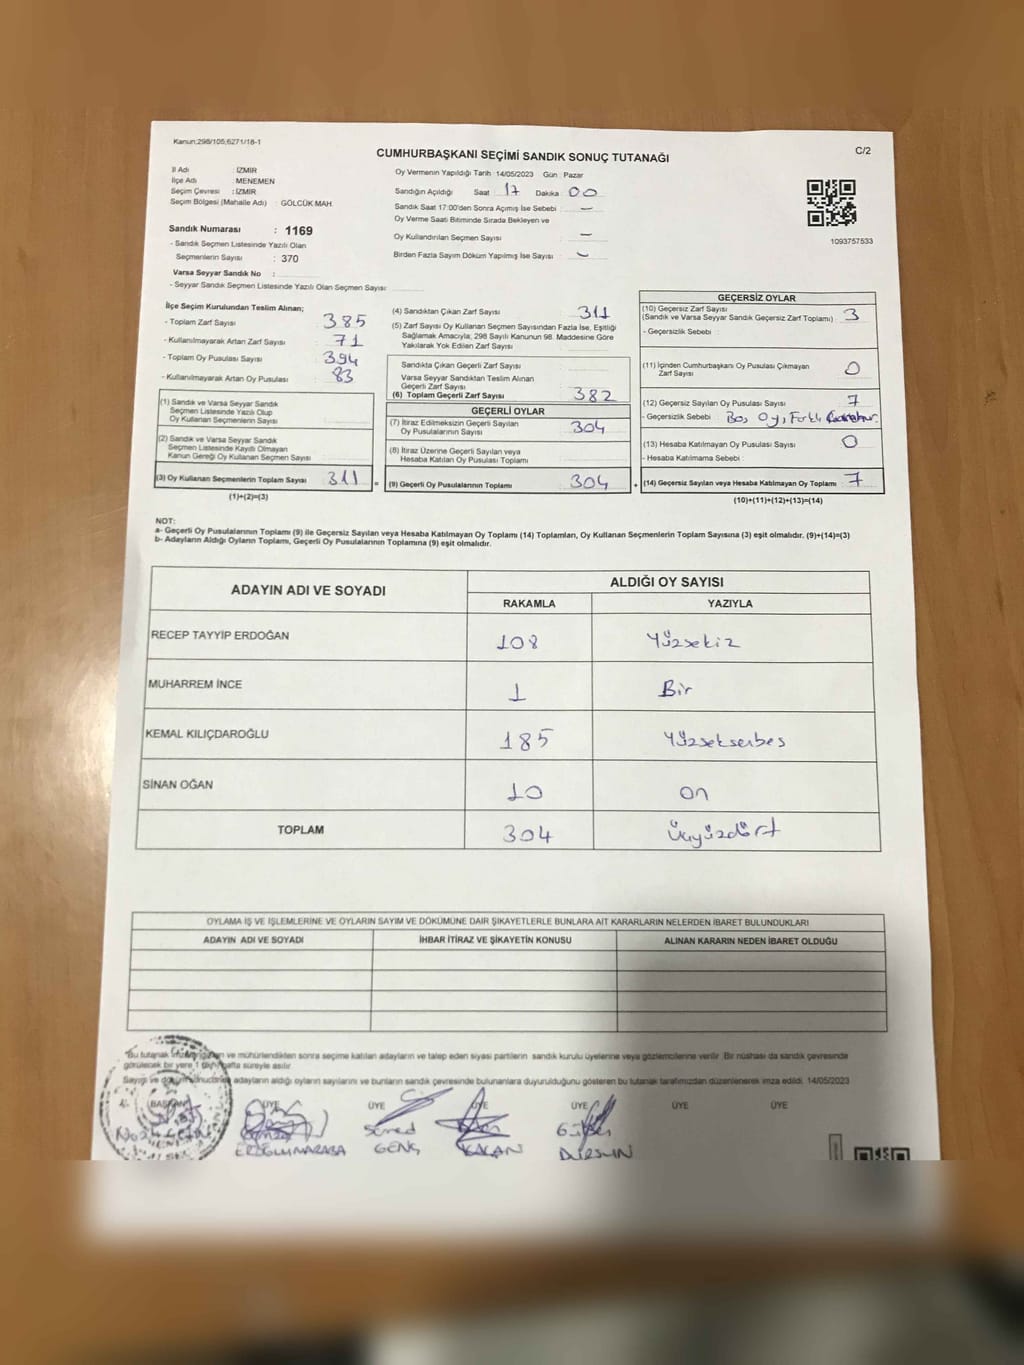 Kanun:298/105;6271/18-1
C/2
CUMHURBAŞKANI SEÇİMİ SANDIK SONUÇ TUTANAĞI
İl Adı : İZMİR
İlçe Adı : MENEMEN
Seçim Çevresi : İZMİR
Seçim Bölgesi (Mahalle Adı) : GÖLCÜK MAH.
Sandık Numarası : 1169
- Sandık Seçmen Listesinde Yazılı Olan
Seçmenlerin Sayısı : 370
Varsa Seyyar Sandık No :
- Seyyar Sandık Seçmen Listesinde Yazılı Olan Seçmen Sayısı:
Oy Vermenin Yapıldığı Tarih :14/05/2023 Gün : Pazar
Sandığın Açıldığı Saat 17 Dakika 00
Sandık Saat 17:00'den Sonra Açımış İse Sebebi : –
Oy Verme Saati Bitiminde Sırada Bekleyen ve
Oy Kullandırılan Seçmen Sayısı : –
Birden Fazla Sayım Döküm Yapılmış İse Sayısı : –
1093757533
İlçe Seçim Kurulundan Teslim Alınan;
- Toplam Zarf Sayısı : 385
- Kullanılmayarak Artan Zarf Sayısı : 71
- Toplam Oy Pusulası Sayısı : 394
- Kullanılmayarak Artan Oy Pusulası : 83
(1) Sandık ve Varsa Seyyar Sandık
Seçmen Listesinde Yazılı Olup
Oy Kullanan Seçmenlerin Sayısı :
(2) Sandık ve Varsa Seyyar Sandık
Seçmen Listesinde Kayıtlı Olmayan
Kanun Gereği Oy Kullanan Seçmen Sayısı :
(3) Oy Kullanan Seçmenlerin Toplam Sayısı : 311
(1)+(2)=(3)
(4) Sandıktan Çıkan Zarf Sayısı : 311
(5) Zarf Sayısı Oy Kullanan Seçmen Sayısından Fazla İse, Eşitliği
Sağlamak Amacıyla; 298 Sayılı Kanunun 98. Maddesine Göre
Yakılarak Yok Edilen Zarf Sayısı :
Sandıkta Çıkan Geçerli Zarf Sayısı :
Varsa Seyyar Sandıktan Teslim Alınan
Geçerli Zarf Sayısı :
(6) Toplam Geçerli Zarf Sayısı : 382
GEÇERLİ OYLAR
(7) İtiraz Edilmeksizin Geçerli Sayılan
Oy Pusulalarının Sayısı : 304
(8) İtiraz Üzerine Geçerli Sayılan veya
Hesaba Katılan Oy Pusulası Toplamı :
= (9) Geçerli Oy Pusulalarının Toplamı : 304
GEÇERSİZ OYLAR
(10) Geçersiz Zarf Sayısı
(Sandık ve Varsa Seyyar Sandık Geçersiz Zarf Toplamı) : 3
- Geçersizlik Sebebi :
(11) İçinden Cumhurbaşkanı Oy Pusulası Çıkmayan
Zarf Sayısı : 0
(12) Geçersiz Sayılan Oy Pusulası Sayısı : 7
- Geçersizlik Sebebi : Boş Oy, Farklı
(13) Hesaba Katılmayan Oy Pusulası Sayısı : 0
- Hesaba Katılmama Sebebi :
+ (14) Geçersiz Sayılan veya Hesaba Katılmayan Oy Toplamı : 7
(10)+(11)+(12)+(13)=(14)
NOT:
a- Geçerli Oy Pusulalarının Toplamı (9) ile Geçersiz Sayılan veya Hesaba Katılmayan Oy Toplamı (14) Toplamları, Oy Kullanan Seçmenlerin Toplam Sayısına (3) eşit olmalıdır. (9)+(14)=(3)
b- Adayların Aldığı Oyların Toplamı, Geçerli Oy Pusulalarının Toplamına (9) eşit olmalıdır.
ADAYIN ADI VE SOYADI
ALDIĞI OY SAYISI
RAKAMLA YAZIYLA
RECEP TAYYİP ERDOĞAN 108 Yüzsekiz
MUHARREM İNCE 1 Bir
KEMAL KILIÇDAROĞLU 185 Yüzseksenbes
SİNAN OĞAN 10 on
TOPLAM 304 Üçyüzdört
OYLAMA İŞ VE İŞLEMLERİNE VE OYLARIN SAYIM VE DÖKÜMÜNE DAİR ŞİKAYETLERLE BUNLARA AİT KARARLARIN NELERDEN İBARET BULUNDUKLARI
ADAYIN ADI VE SOYADI İHBAR İTİRAZ VE ŞİKAYETİN KONUSU ALINAN KARARIN NEDEN İBARET OLDUĞU
*Bu tutanak ve mühürlendikten sonra seçime katılan adayların ve talep eden siyasi partilerin sandık kurulu üyelerine veya gözlemcilerine verilir. Bir nüshası da sandık çevresinde
görülecek bir yere 1 hafta süreyle asılır.
Sayım ve döküm sonucunda adayların aldığı oyların sayılarını ve bunların sandık çevresinde bulunanlara duyurulduğunu gösteren bu tutanak tarafımızdan düzenlenerek imza edildi. 14/05/2023
BAŞKAN ÜYE ÜYE ÜYE ÜYE ÜYE ÜYE
Samed
GENÇ KALAN DURSUN